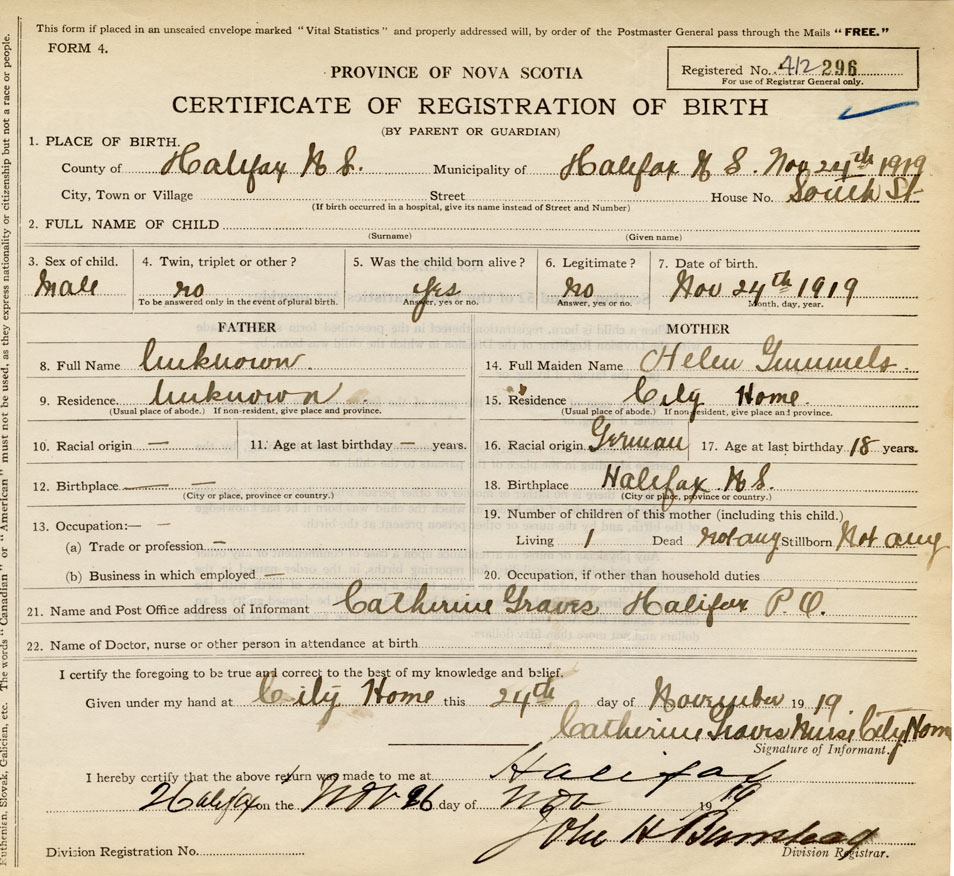 This form if placed in an unsealed envelope marked "Vital Statistics" and properly addressed will, by order of the Postmaster General pass through the Mails "FREE."
FORM 4.
Registered No. 412 296
For use of Registrar General only.
PROVINCE OF NOVA SCOTIA
CERTIFICATE OF REGISTRATION OF BIRTH
(BY PARENT OR GUARDIAN)
1. PLACE OF BIRTH.
County of Halifax N S. Municipality of Halifax N S. Nov 24th 1919
City, Town or Village Street House No. South St
(If birth occurred in a hospital, give its name instead of Street and Number)
2. FULL NAME OF CHILD
(Surname) (Given name)
3. Sex of child. 4. Twin, triplet or other? 5. Was the child born alive? 6. Legitimate? 7. Date of birth.
Male no yes no Nov 24th 1919
To be answered only in the event of plural birth. Answer, yes or no. Answer, yes or no. Month, day, year.
FATHER MOTHER
8. Full Name Unknown. 14. Full Maiden Name Helen Gummels.
9. Residence. Unknown. 15. Residence City Home.
(Usual place of abode.) If non-resident, give place and province. (Usual place of abode.) If non-resident, give place and province.
10. Racial origin — 11. Age at last birthday — years. 16. Racial origin German 17. Age at last birthday 18 years.
12. Birthplace — — 18. Birthplace Halifax N S.
(City or place, province or country.) (City or place, province or country.)
13. Occupation:— — 19. Number of children of this mother (including this child.)
(a) Trade or profession — Living 1 Dead not any Stillborn Not any
(b) Business in which employed — 20. Occupation, if other than household duties
21. Name and Post Office address of Informant Catherine Graves Halifax P. O.
22. Name of Doctor, nurse or other person in attendance at birth
I certify the foregoing to be true and correct to the best of my knowledge and belief.
Given under my hand at City Home this 24th day of November 1919.
Catherine Graves Nurse City Home
Signature of Informant.
I hereby certify that the above return was made to me at Halifax
Halifax on the Nov 26 day of Nov 1919
John H Barnstead
Division Registration No. Division Registrar.
Ruthenian, Slovak, Galician, etc. The words "Canadian" or "American" must not be used, as they express nationality or citizenship but not a race or people.